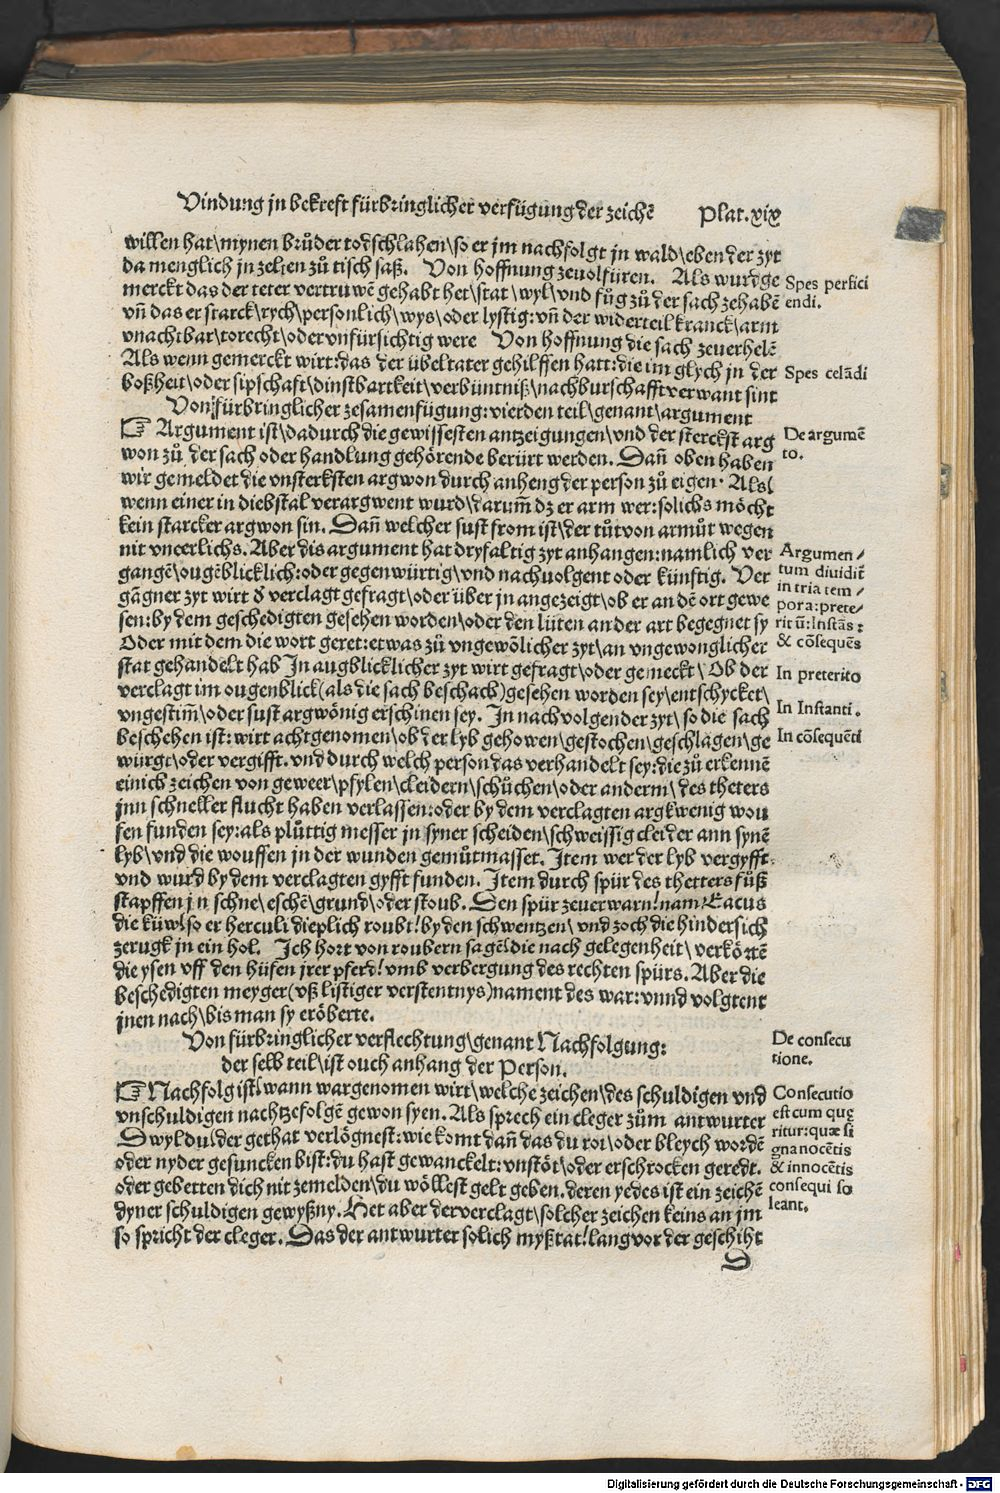 Vindung jn bekreft fürbringlicher verfügung der zeichē Plat.xix
willen hat\mynen brůder todschlahen\so er jm nachfolgt jn wald\eben der zyt
da menglich jn zelten zů tisch saß. Von hoffnung zeuolfüren. Als wurdge
merckt das der teter vertruwē gehabt het\stat\wyl\vnd fůg zů der sach zehabē
vñ das er starck\rych\personlich\wys\oder lystig:vñ der widerteil kranck\arm
vnachtbar\torecht\oder vnfürsichtig were Von hoffnung die sach zeuerhelē
Als wenn gemerckt wirt:das der übeltater gehilffen hatt:die im glych jn der
boßheit\oder sipschaft\dinstbartkeit\verbüntniß\nachburschafft verwant sint
Spes perfici
endi.
Spes celādi
Von fürbringlicher zesamenfügung:vierden teil\genant\argument
Argument ist\dadurch die gewissesten antzeigungen\vnd der sterckest arg
won zů der sach oder handlung gehörende berürt werden. Dañ oben haben
wir gemeldet die vnsterksten argwon durch anheng der person zů eigen. Als\
wenn einer in diebstal verargwent wurd\darum̄ dz er arm wer:solichs möcht
kein starcker argwon sin. Dañ welcher sust from ist\der tůt von armůt wegen
nit vneerlichs. Aber dis argument hat dryfaltig zyt anhangen:namlich ver
gangē\ougēblicklich:oder gegenwürtig\vnd nachuolgent oder künftig. Ver
gāgner zyt wirt d̄ verclagt gefragt\oder über jn angezeigt\ob er an dē ort gewe
sen:by dem geschedigten gesehen worden\oder den lüten an der art begegnet sy
Oder mit dem die wort geret:etwas zů vngewölicher zyt\an vngewonglicher
stat gehandelt hab Jn augblicklicher zyt wirt gefragt\oder gemeckt\Ob der
verclagt im ougenblick(als die sach beschach)gesehen worden sey\entschycket\
vngestim̄\oder sust argwönig erschinen sey. Jn nachvolgender zyt\so die sach
beschehen ist:wirt acht genomen\ob der lyb gehowen\gestochen\geschlagen\ge
würgt\oder vergifft.vnd durch welch person das verhandelt sey:die zů erkennē
einich zeichen von geweer\pfylen\cleidern\schůchen\oder anderm\des theters
jnn schneller flucht haben verlassen:oder by dem verclagten argkwenig wou
fen funden sey:als plůttig messer jn syner scheiden\schweissig cleider ann synē
lyb\vnd die wouffen jn der wunden gemůtmasset. Jtem wer der lyb vergyfft
vnd wurd by dem verclagten gyfft funden. Jtem durch spür des thetters fůß
stapffen jn schne\eschē\grund\oder stoub. Den spür zeuerwarn!nam Cacus
die küw!so er herculi dieplich roubt!by den schwentzen\vnd zoch die hindersich
zerugk jn ein hol. Jch hort von roubern sagē!die nach gelegenheit\verkörtē
die ysen vff den hüfen jrer pferd!vmb verbergung des rechten spürs. Aber die
beschedigten meyger(vß listiger verstentnys)nament des war:vnnd volgtent
jnen nach\bis man sy eröberte.
De argumē
to.
Argumen⸗
tum diuidit̄
in tria tem⸗
pora:prete⸗
rit ū:Instās:
& cōsequēs
In preterito
In Instanti.
In cōsequēti
Von fürbringlicher verflechtung\genant Nachfolgung:
der selb teil\ist ouch anhang der Person.
Nachfolg ist\wann wargenomen wirt\welche zeichen\des schuldigen vnd
vnschuldigen nachtzefolgē gewon syen. Als sprech ein cleger zům antwurter
Dwyl du\der gethat verlögnest:wie komt dañ das du rot\oder bleych wordē
oder nyder gesuncken bist:du hast gewanckelt:vnstöt\oder erschrocken geredt.
oder gebetten dich nit zemelden\du wöllest gelt geben.deren yedes ist ein zeichē
dyner schuldigen gewyßny. Het aber der verclagt\solcher zeichen keins an jm
so spricht der cleger. Das der antwurter solich myßtat!lang vor der geschiht
D
De consecu
tione.
Consecutio
est cum que
ritur:quæ si
gna nocētis
& innocētis
consequi so
leant.
Digitalisierung gefördert durch die Deutsche Forschungsgemeinschaft - DFG